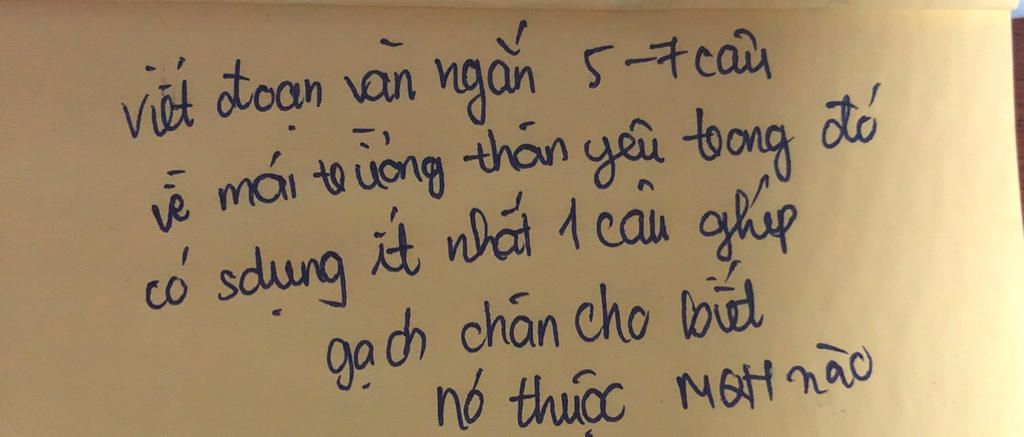 viết đoạn văn ngắn 5-7 câu
về mái trường thân yêu trong đó
có sdụng ít nhất 1 câu ghép
gạch chân cho biết
nó thuộc MQH nào